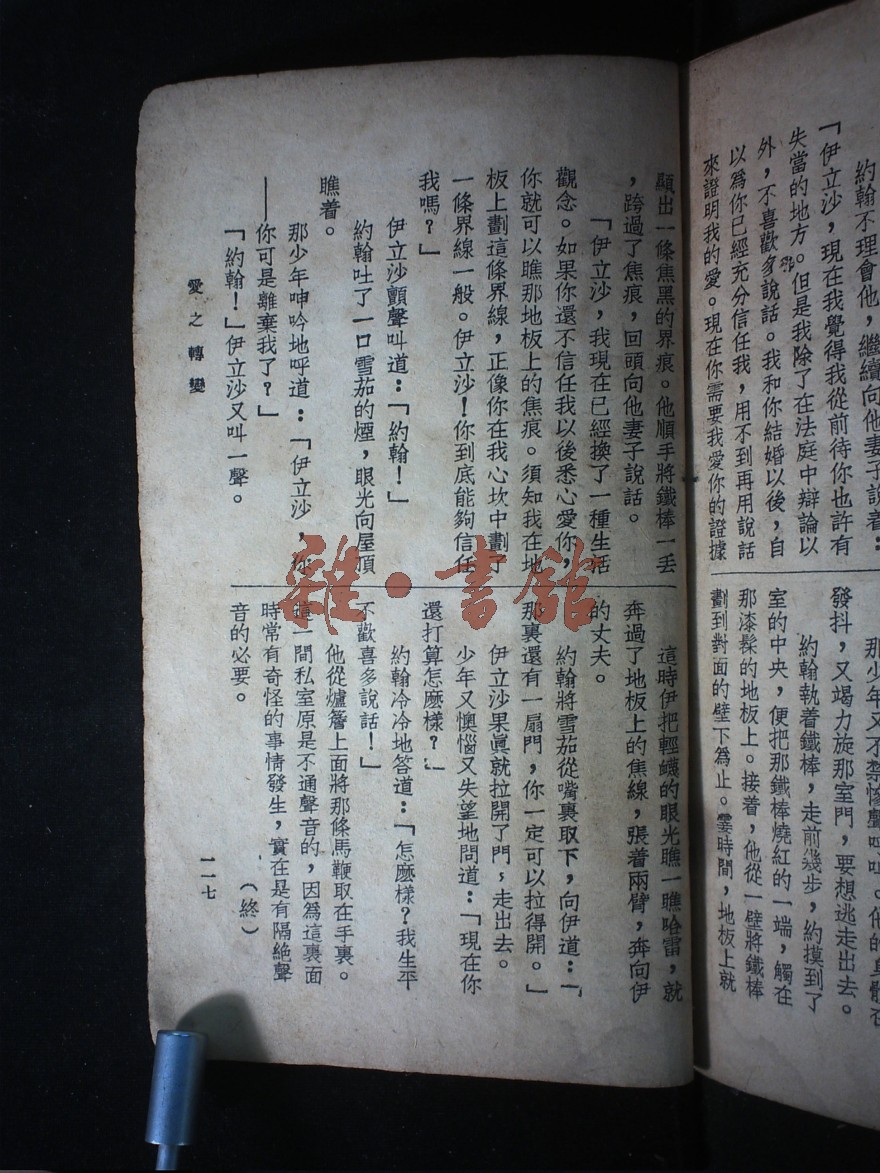 約翰不理會他，繼續向他妻子說着：
「伊立沙，現在我覺得我從前待你也許有
失當的地方。但是我除了在法庭中辯論以
外，不喜歡多說話。我和你結婚以後，自
以爲你已經充分信任我，用不到再用說話
來證明我的愛。現在你需要我愛你的證據
那少年又不禁慘聲呼叫。他的身體在
發抖，又竭力旋那室門，要想逃走出去。
約翰執着鐵棒，走前幾步，約摸到了
室的中央，便把那鐵棒燒紅的一端，觸在
那漆髹的地板上。接着，他從一壁將鐵棒
劃到對面的壁下爲止。霎時間，地板上就
顯出一條焦黑的界痕。他順手將鐵棒一丟
，跨過了焦痕，回頭向他妻子說話。
「伊立沙，我現在已經換了一種生活
觀念。如果你還不信任我以後悉心愛你，
你就可以瞧那地板上的焦痕。須知我在地
板上劃這條界線，正像你在我心坎中劃了
一條界線一般。伊立沙！你到底能夠信任
我嗎？」
伊立沙顫聲叫道：「約翰！」
約翰吐了一口雪茄的煙，眼光向屋頂
瞧着。
那少年呻吟地呼道：「伊立沙，你
——你可是離棄我了？」
「約翰！」伊立沙又叫一聲。
這時伊把輕衊的眼光瞧一瞧哈雷，就
奔過了地板上的焦線，張着兩臂，奔向伊
的丈夫。
約翰將雪茄從嘴裏取下，向伊道：「
那裏還有一扇門，你一定可以拉得開。」
伊立沙果眞就拉開了門，走出去。
少年又懊惱又失望地問道：「現在你
還打算怎麼樣？」
約翰冷冷地答道：「怎麼樣？我生平
不歡喜多說話！」
他從爐簷上面將那條馬鞭取在手裏。
這一間私室原是不通聲音的，因爲這裏面
時常有奇怪的事情發生，實在是有隔絕聲
音的必要。
（終）
愛之轉變
一一七
雜·書館